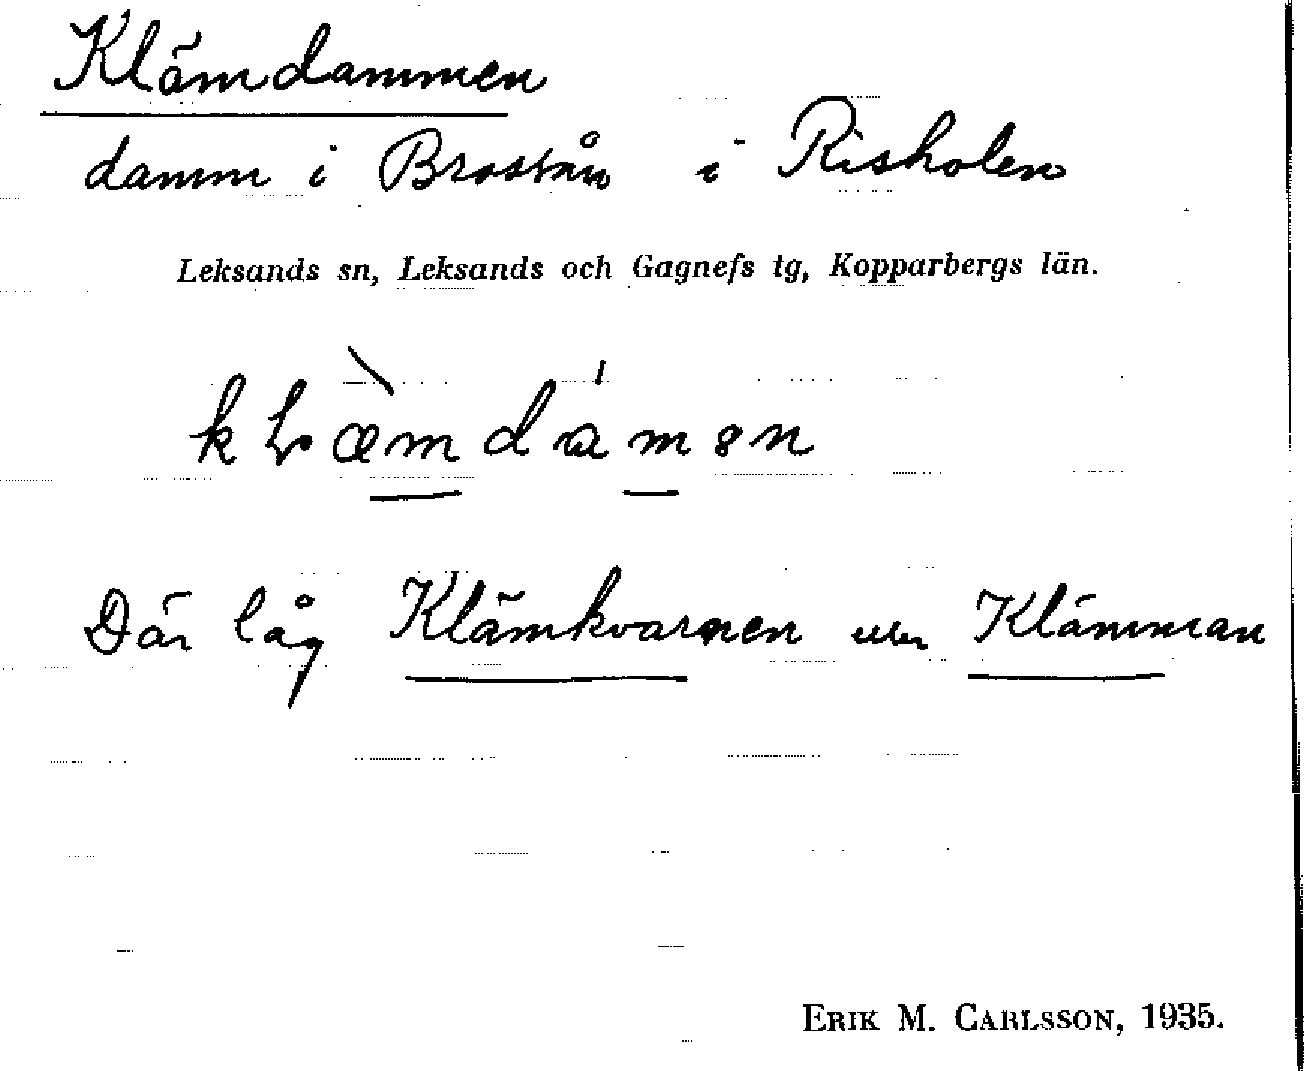 Klämdammen
damm i Brostån i Risholen
Leksands sn, Leksands och Gagnefs tg, Kopparbergs län.
Där låg Klämkvarnen eller Klämman
ERIK M. CARLSSON, 1935.